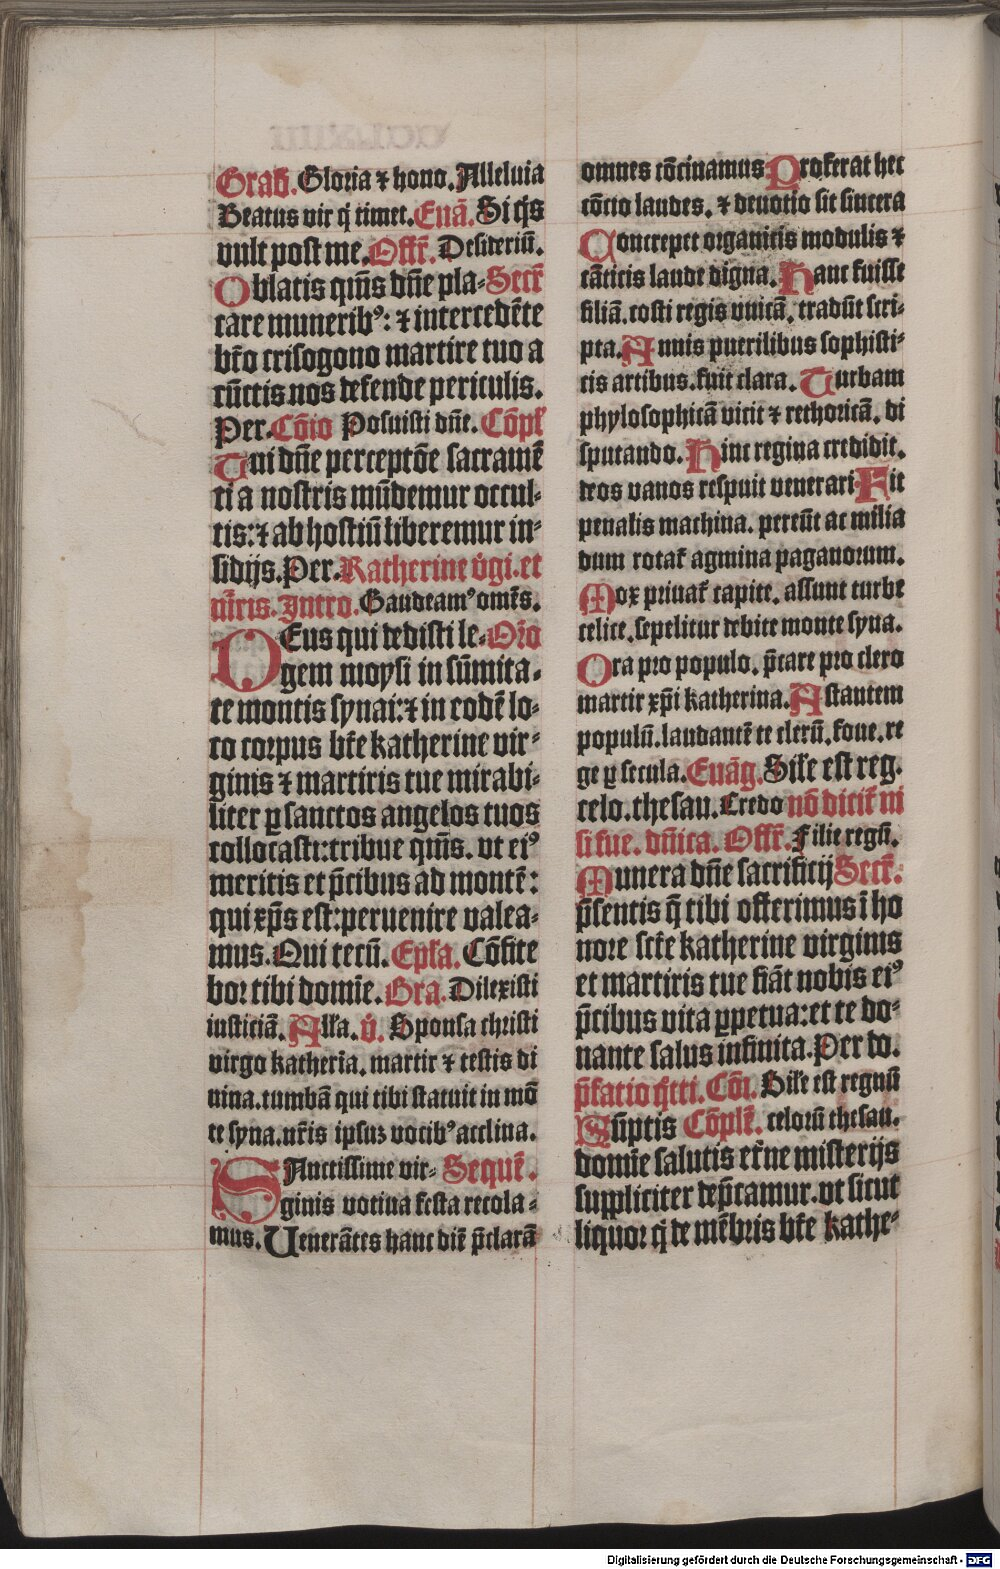 Grad̄. Gloria ⁊ hono. Alleluia
Beatus vir q̇ timet. Euā. Si q̇s
vult post me. Offr̄. Desideriū.
Oblatis qm̄s dn̄e pla- Secr̄
care munerib⁹: ⁊ intercedēte
bt̄o crisogono martire tuo a
cūctis nos defende periculis.
Per. Cōio Posuisti dn̄e. Cōpl̄
Tui dn̄e perceptōe sacramē
ti a nostris mūdemur occul-
tis: ⁊ ab hostiū liberemur in-
sidijs. Per. Katherine v̇gi. et
mr̄is. Intro. Gaudeam⁹ om̄s.
DEus qui dedisti le- Or̄o
gem moysi in sūmita-
te montis synai: ⁊ in eodē lo-
co corpus bt̄e katherine vir-
ginis ⁊ martiris tue mirabi-
liter ꝑ sanctos angelos tuos
collocasti: tribue qm̄s. vt ei⁹
meritis et p̄cibus ad montē:
qui xp̄s est: peruenire valea-
mus. Qui tecū. Epl̄a. Cōfite
bor tibi domīe. Gra. Dilexisti
iusticiā. All̄a. v̇. Sponsa christi
virgo katherīa. martir ⁊ testis di
uina. tumbā qui tibi statuit in mō
te syna. nr̄is ipsuꝫ vocib⁹ acclina.
SAnctissime vir- Sequē.
ginis votiua festa recola-
mus. Venerātes hanc diē p̄clarā
omnes cōcinamus Proferat hec
cōcio laudes. ⁊ deuotio sit sincera
Concrepet organicis modulis ⁊
cāticis laude digna. Hanc fuisse
filiā. costi regis vnicā. tradūt scri-
pta. Annis puerilibus sophisti-
cis artibus. fuit clara. Turbam
phylosophicā vicit ⁊ rethoricā. di
sputando. Hinc regina credidit.
deos vanos respuit venerari Fit
penalis machina. pereūt ac milia
dum rotat̄ agmina paganorum.
Mox priuat̄ capite. assunt turbe
celice. sepelitur debite monte syna.
Ora pro populo. p̄care pro clero
martir xp̄i katherina. Astantem
populū. laudantē te clerū. foue. re
ge ꝑ secula. Euāg. Sil̄e est reg.
celo. thesau. Credo nō dicit̄ ni
si fue. dn̄ica. Offr̄. Filie regū.
Munera dn̄e sacrificij Secr̄.
p̄sentis q̄ tibi offerimus ī ho
nore sct̄e katherine virginis
et martiris tue fiāt nobis ei⁹
p̄cibus vita ꝑpetua: et te do-
nante salus infinita. Per do.
p̄fatio q̄tti. Cōi. Sil̄e est regnū
Sūptis Cōplē. celorū thesau.
domīe salutis et̄ne misterijs
suppliciter dep̄camur. vt sicut
liquor q̇ de mēbris bt̄e kathe-
Digitalisierung gefördert durch die Deutsche Forschungsgemeinschaft - DFG